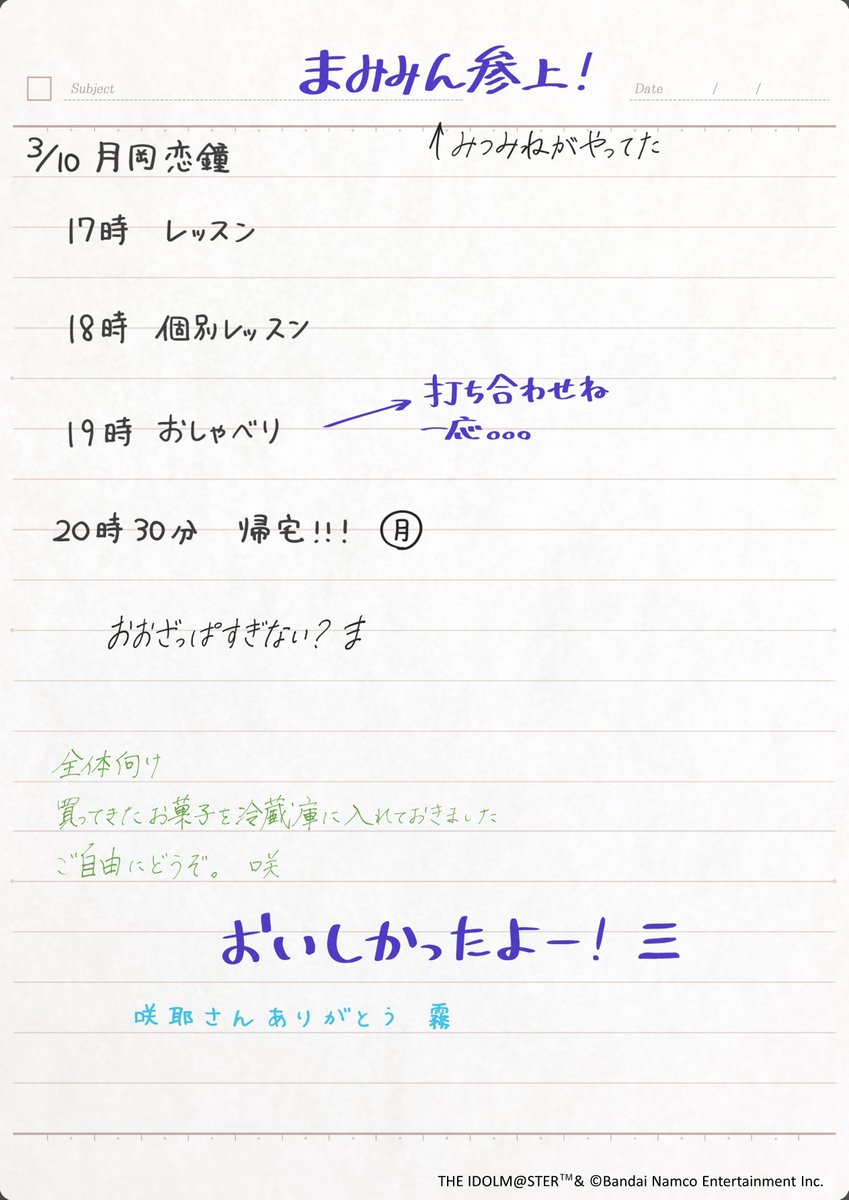 まみみん参上!
Subject
Date / /
↑みつみねがやってた
3/10 月岡恋鐘
17時 レッスン
18時 個別レッスン
19時 おしゃべり
打ち合わせね
一応。。。
20時30分 帰宅!!! 月
おおざっぱすぎない? ま
全体向け
買ってきたお菓子を冷蔵庫に入れておきました
ご自由にどうぞ。 咲
おいしかったよー! 三
咲耶さんありがとう 霧
THE IDOLM@STER™& ©Bandai Namco Entertainment Inc.